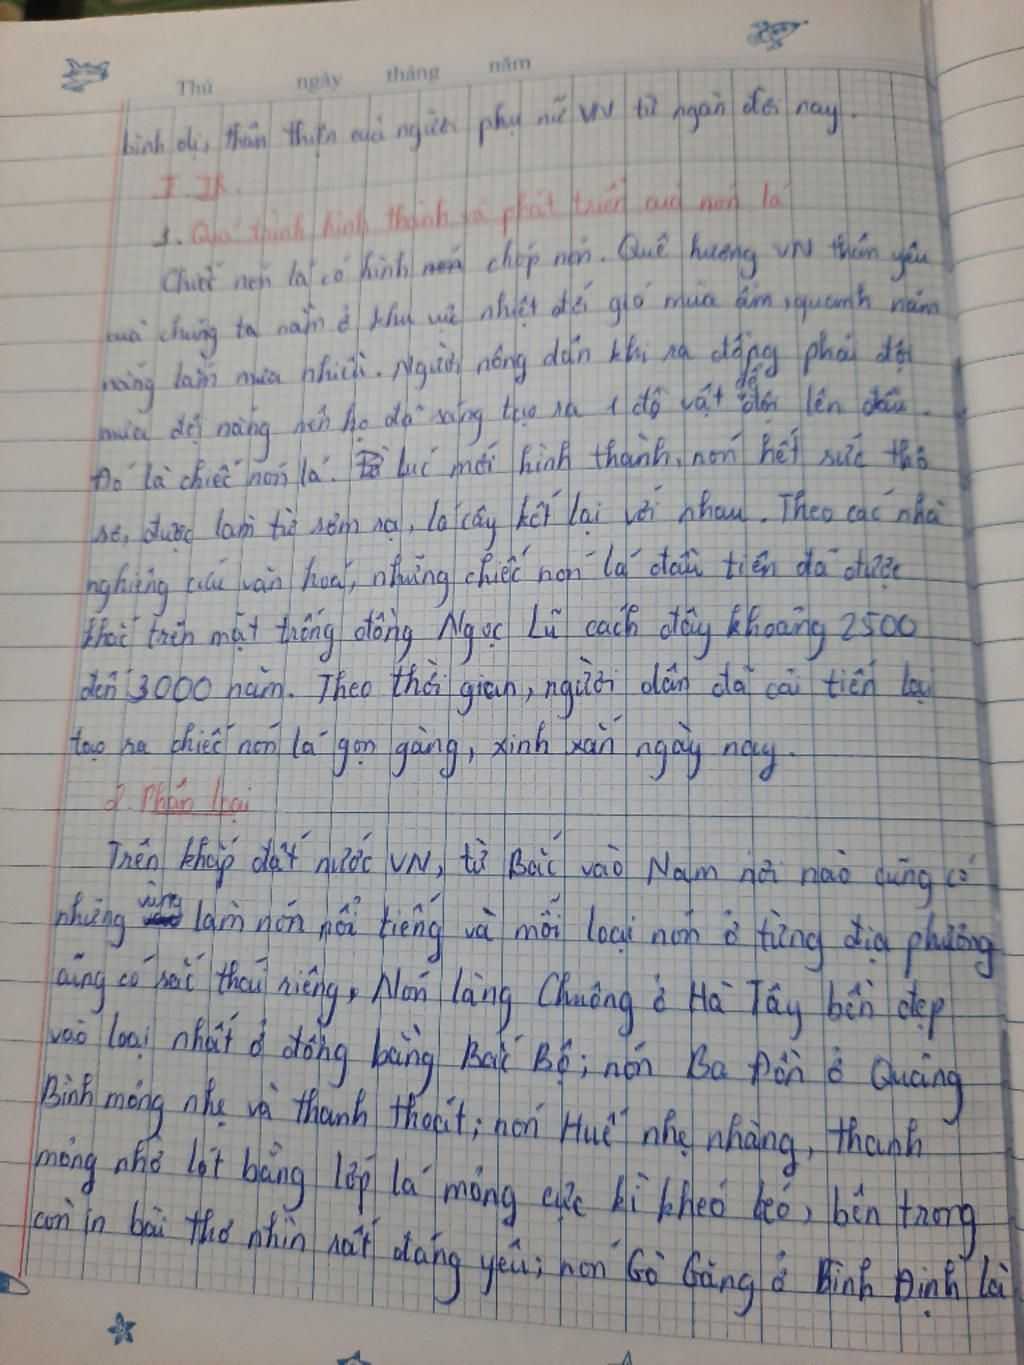 Thứ ngày tháng năm
bình dị, thân thiện của người phụ nữ VN từ ngàn đời nay.
I II.
1. Quá trình hình thành và phát triển của nón lá
Chiếc nón lá có hình chóp nón. Quê hương VN thân yêu
của chúng ta nằm ở khu vực nhiệt đới gió mùa ẩm, quanh năm
nắng lắm mưa nhiều. Người nông dân khi ra đồng phải đội
mưa đội nắng nên họ đã sáng tạo ra 1 đồ vật để đội lên đầu.
Đó là chiếc nón lá. Từ lúc mới hình thành, nón hết sức thô
sơ, được làm từ rơm rạ, lá cây kết lại với nhau. Theo các nhà
nghiêng cứu văn hoá, những chiếc nón lá đầu tiên đã được
khắc trên mặt trống đồng Ngọc Lũ cách đây khoảng 2500
đến 3000 năm. Theo thời gian, người dân đã cải tiến lại
tạo ra chiếc nón lá gọn gàng, xinh xắn ngày nay.
2. Phân loại
Trên khắp đất nước VN, từ Bắc vào Nam nơi nào cũng có
những vùng làm nón nổi tiếng và mỗi loại nón ở từng địa phương
cũng có sắc thái riêng, Nón làng Chuông ở Hà Tây bền đẹp
vào loại nhất ở đồng bằng Bắc Bộ; nón Ba Đồn ở Quảng
Bình mỏng nhẹ và thanh thoát; nón Huế nhẹ nhàng, thanh
mỏng nhờ lót bằng lớp lá mỏng cực kì khéo léo, bên trong
còn in bài thơ nhìn rất đáng yêu; nón Gò Găng ở Bình Định là